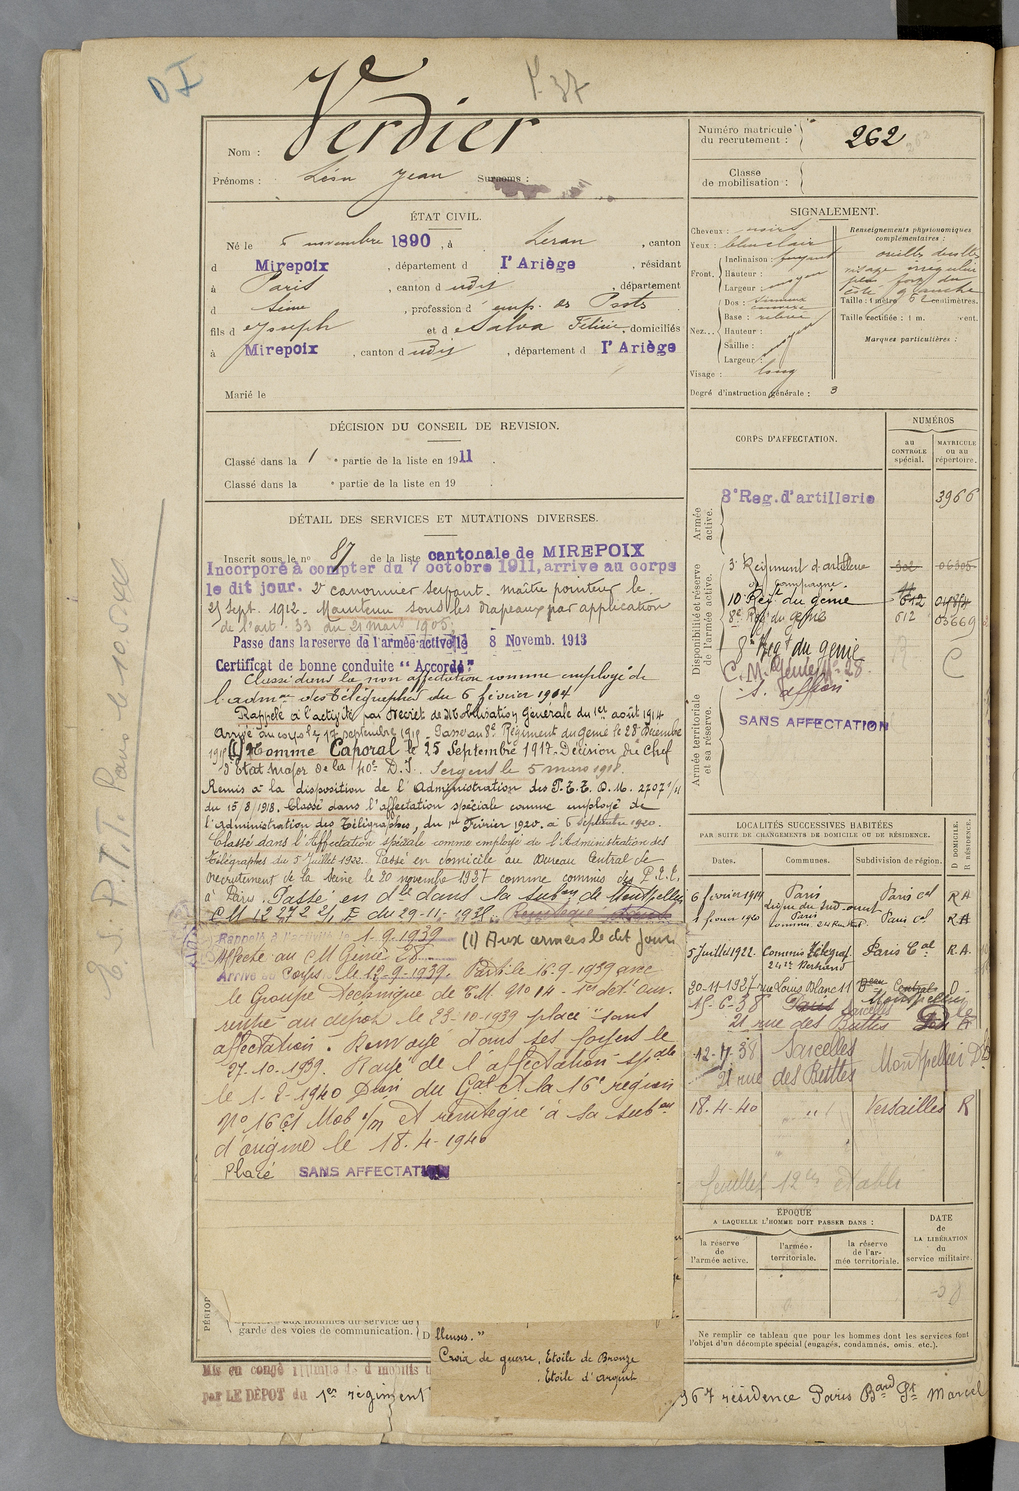 D I
P. 37
Verdier
Nom :
Prénoms : Léon Jean Surnoms :
Numéro matricule du recrutement : 262
Classe de mobilisation :
ÉTAT CIVIL.
Né le 5 novembre 1890, à Léran, canton
d Mirepoix, département d l'Ariège, résidant
à Paris, canton d udis, département
d Seine, profession d' emp. des Posts
fils d Joseph et d Salva Félicie, domiciliés
à Mirepoix, canton d udis, département d l'Ariège
Marié le
SIGNALEMENT.
Cheveux : noirs
Yeux : bleu clair
Front. Inclinaison : fuyant
Hauteur :
Largeur : moyen
Nez... Dos : sinueux
convexe
Base : relevée
Hauteur :
Saillie : moyen
Largeur :
Visage : long
Renseignements physionomiques complémentaires :
oreille droite
visage irrégulier
plus fort du
côté gauche
Taille : 1 mètre 62 centimètres.
Taille rectifiée : 1 m. cent.
Marques particulières :
Degré d'instruction générale : 3
DÉCISION DU CONSEIL DE REVISION.
Classé dans la 1 e partie de la liste en 1911.
Classé dans la e partie de la liste en 19 .
DÉTAIL DES SERVICES ET MUTATIONS DIVERSES.
Inscrit sous le no 87 de la liste cantonale de MIREPOIX
Incorporé à compter du 7 octobre 1911, arrive au corps
le dit jour. 2e canonnier servant. Maître pointeur le
25 sept. 1912. Maintenu sous les drapeaux par application
de l'art. 33 du 21 mars 1905.
Passé dans la réserve de l'armée active le 8 Novemb. 1913
Certificat de bonne conduite "Accordé"
Classé dans la non affectation comme employé de
l'admon des Télégraphes du 6 février 1914
Rappelé à l'activité par Décret de Mobilisation Générale du 1er août 1914
Arrivé au corps le 17 septembre 191 . Passé au 8e Régiment du génie le 28 Décembre
191 (1) Nommé Caporal le 25 Septembre 1917. Décision du Chef
d'Etat Major de la 40e D.I. Sergent le 5 mars 1918.
Remis à la disposition de l'Administration des P.T.T. O.M. 27071/11
du 15/8/1918. Classé dans l'affectation spéciale comme employé de
l'Administration des Télégraphes, du 1er Février 1920. à 6 septembre 1920.
Classé dans l'Affectation spéciale comme employé de l'Administration des
Télégraphes du 5 Juillet 1922. Passé en domicile au Bureau Central de
recrutement de la Seine le 20 novembre 1937 comme commis des P.T.T.
à Paris. Passé en dle dans la subon de Montpellier
CM 12272 2/1 E du 29-11-1938. Réintégré
Rappelé à l'activité le 1-9-1939 (1) Aux armées le dit jour
Affecté au CM Génie 28
Arrivé au Corps le 12-9-1939. Parti le 16-9-1939 avec
le Groupe Technique de T.M. no 14 - 1er det. an.
rentré au dépôt le 23-10-1939 placé "sans
affectation". Renvoyé dans ses foyers le
27-10-1939. Rayé de l'affectation spale
le 1-2-1940 Don du Gal Ct la 16e région
No 1661 Mob 1/M et réintégré à sa subon
d'origine le 18-4-1940
Placé SANS AFFECTATION
CORPS D'AFFECTATION.
NUMÉROS
au CONTROLE spécial.
MATRICULE ou au répertoire.
Armée active.
8e Reg. d'artillerie 3966
Disponibilité et réserve de l'armée active.
3e Régiment d'artillerie de campagne
10e Regt du génie 612
8e Reg. du génie 612 03669
8e Regt du génie
C.M. Génie No 28. C
S. affon
Armée territoriale et sa réserve.
SANS AFFECTATION
LOCALITÉS SUCCESSIVES HABITÉES
PAR SUITE DE CHANGEMENTS DE DOMICILE OU DE RÉSIDENCE.
D DOMICILE. R RÉSIDENCE.
Dates. Communes. Subdivision de région.
6 février 1914 Paris Paris cal R A
Ligne du Sud-ouest
1 février 1920 Paris Paris Cal R A
5 Juillet 1922. Commis Télégraf Paris Cal R.A.
24 r. Bertrand
30-11-1937 rue Louis Blanc 11 Beau Central D
15-6-38 Paris Sarcelles Montpellier
21 rue des Buttes
12-7-38 Sarcelles Montpellier
21 rue des Buttes
18-4-40 " " Versailles R
feuillet 12 établi
ÉPOQUE
A LAQUELLE L'HOMME DOIT PASSER DANS :
la réserve de l'armée active.
l'armée territoriale.
la réserve de l'armée territoriale.
DATE de LA LIBÉRATION du service militaire.
Ne remplir ce tableau que pour les hommes dont les services font
l'objet d'un décompte spécial (engagés, condamnés, omis, etc.).
PÉRIOD
garde des voies de communication. D
lleuses."
Croix de guerre, Etoile de Bronze
. Etoile d'argent
Mis en congé illimité de d mobilis
par LE DEPOT du 1er régiment
967 résidence Paris Bard St Marcel
E. S. P.T.T. Paris le 10.